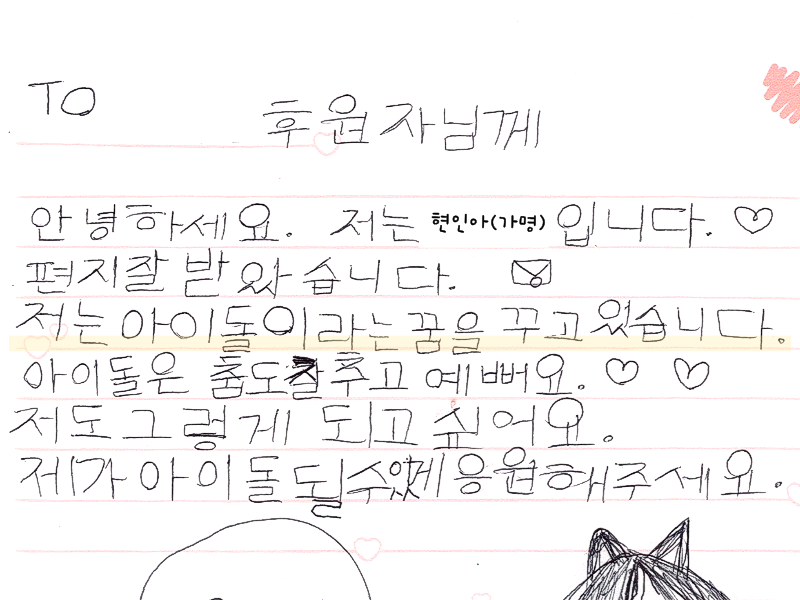 TO
후원자님께
안녕하세요. 저는 현인아(가명) 입니다.
편지잘 받았습니다.
저는 아이돌이라는 꿈을 꾸고 있습니다.
아이돌은 춤도 잘 추고 예뻐요.
저도 그렇게 되고 싶어요.
제가 아이돌 될 수 있게 응원해주세요.